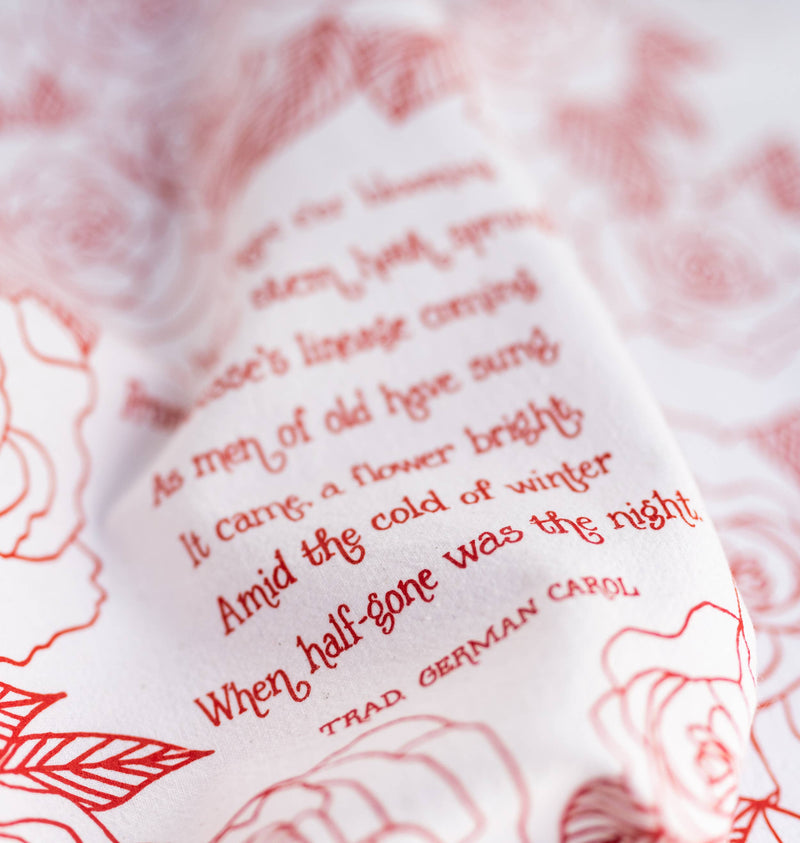 blooming
stem hath sprung
lineage coming
As men of old have sung
It came, a flower bright,
Amid the cold of winter
When half-gone was the night.
TRAD. GERMAN CAROL